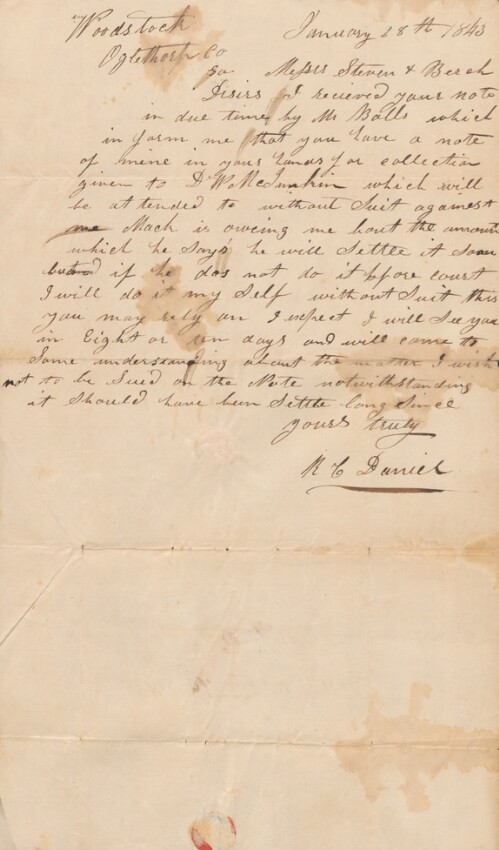 Woodstock January 28th 1843
Oglethorp Co
Ga Messrs Steven & Berch
Dsirs I recieved your note
in due time by Mr Balls which
in form me that you have a note
of mine in your hands for collection
given to D W McJunkin which will
be attended to without Suit against
me Mack is owing me bout the amount
which he says he will Settle it soon
and if he dos not do it before court
I will do it my Self without Suit this
you may rely on I expect I will See you
in Eight or ten days and will come to
Some understanding about the matter I wish
not to be Sued on the Note notwithstanding
it Should have been Settle long Since
yours truly
R C Daniel